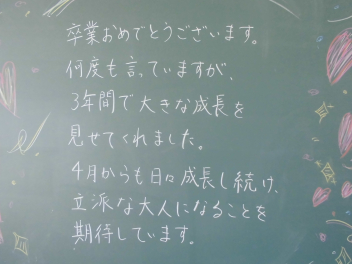 卒業おめでとうございます。
何度も言っていますが、
3年間で大きな成長を
見せてくれました。
4月からも日々成長し続け、
立派な大人になることを
期待しています。